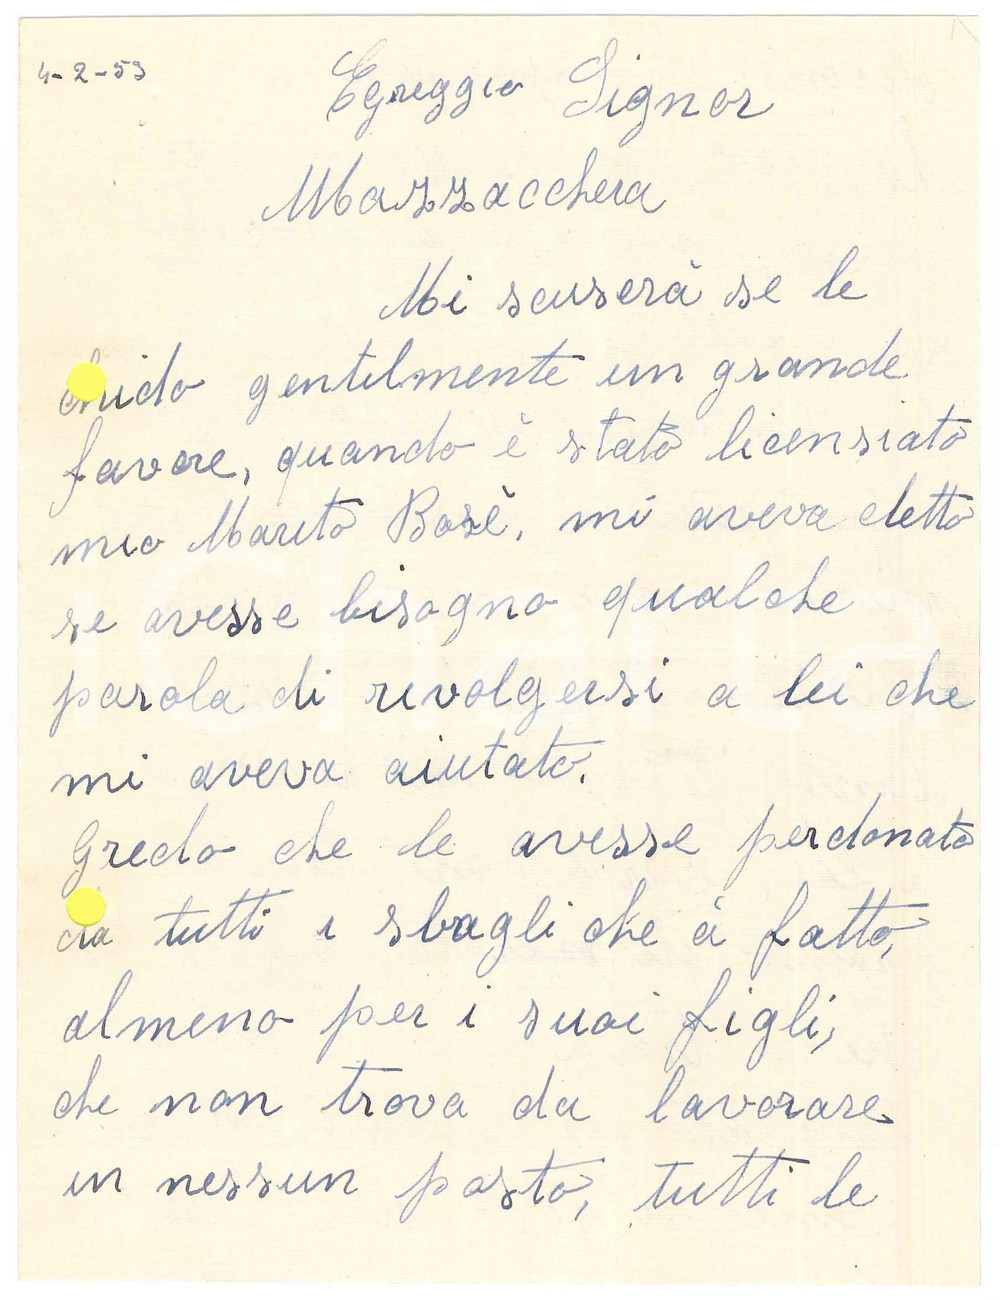 4-2-53
Egreggio Signor
Mazzacchera
Mi scuserà se le
chido gentilmente un grande
favore, quando è stato licensiato
mio Marito Bosè, mi aveva detto
se avesse bisogno qualche
parola di rivolgersi a lei che
mi aveva aiutato.
Gredo che le avesse perdonato
tutti i sbagli che à fatto,
almeno per i suoi figli,
che non trova da lavorare
in nessun posto, tutti le